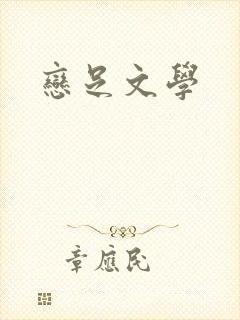 戀足文學
章應民